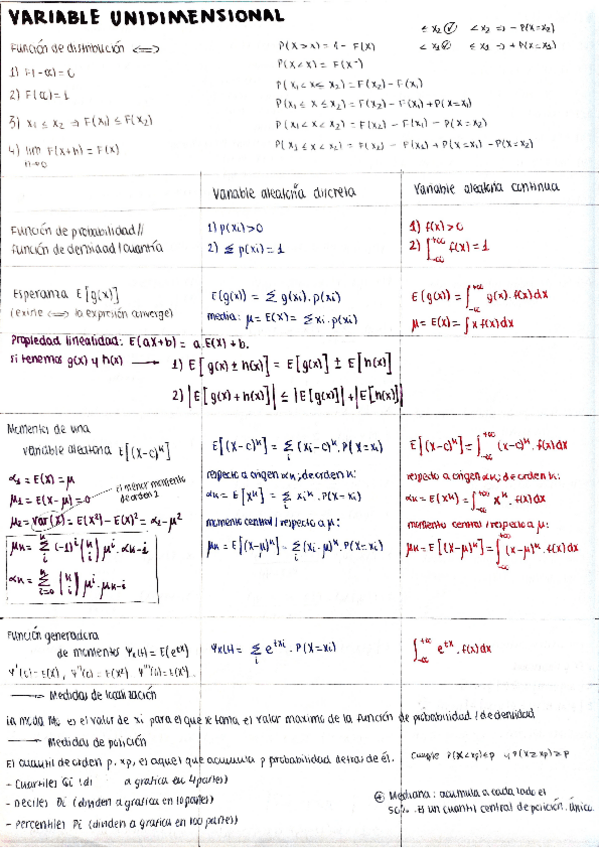 VARIABLE UNIDIMENSIONAL
Función de distribución <=>
1) F(-∞)=0
2) F(∞)=1
3) x₁ ≤ x₂ ⇒ F(x₁) ≤ F(x₂)
4) lim F(x+h) = F(x)
≤ x₂ ✓ < x₂ ⇒ - P(X=x₂)
≤ x₁ ⇒ + P(X=x₁)
P(X > x) = 1 - F(x)
P(X < x) = F(x⁻)
P(x₁ < X ≤ x₂) = F(x₂) - F(x₁)
P(x₁ ≤ X ≤ x₂) = F(x₂) - F(x₁) + P(X=x₁)
P(x₁ < X < x₂) = F(x₂) - F(x₁) - P(X=x₂)
P(x₁ ≤ X < x₂) = F(x₂) - F(x₁) + P(X=x₁) - P(X=x₂)
Variable aleatoria discreta
Variable aleatoria continua
Función de probabilidad//
función de densidad/cuantía
1) p(xi)>0
2) Σ p(xi)=1
1) f(x)>0
2) ∫₋∞^+∞ f(x)=1
Esperanza E[g(x)]
(existe <=> la expresión converge)
E(g(x)) = Σ g(xi).p(xi)
media: μ = E(X) = Σ xi.p(xi)
E(g(x)) = ∫₋∞^+∞ g(x).f(x)dx
μ = E(X) = ∫ x f(x)dx
Propiedad linealidad: E(aX+b) = a.E(X)+b.
si tenemos g(x) y h(x) → 1) E[g(x) ± h(x)] = E[g(x)] ± E[h(x)]
2) |E[g(x)+h(x)]| ≤ |E[g(x)]|+|E[h(x)]|
Momentos de una
variable aleatoria E[(X-c)^k]
α₁ = E(X) = μ
μ₁ = E(X-μ) = 0
el menor momento
de orden 2
μ₂ = Var(X) = E(X²) - E(X)² = α₂ - μ²
μk = Σ (-1)^i (k i) μ^i . αk-i
αk = Σ (k i) μ^i . μk-i
E[(X-c)^k] = Σ (xi-c)^k . P(X=xi)
respecto a origen αk; de orden k:
αk = E[X^k] = Σ xi^k . P(X=xi)
momento central/respecto a μ:
μk = E[(X-μ)^k] = Σ (xi-μ)^k . P(X=xi)
E[(X-c)^k] = ∫₋∞^+∞ (x-c)^k . f(x)dx
respecto a origen αk; de orden k:
αk = E(X^k) = ∫₋∞^+∞ x^k . f(x)dx
momento central/respecto a μ:
μk = E[(X-μ)^k] = ∫₋∞^+∞ (x-μ)^k . f(x)dx
Función generadora
de momentos Ψx(t) = E(e^tx)
Ψ'(0) = E(X), Ψ''(0) = E(X²) Ψ'''(0) = E(X³)
Ψx(t) = Σ e^txi . P(X=xi)
∫₋∞^+∞ e^tx . f(x)dx
→ Medidas de localización
La moda Mo es el valor de xi para el que se toma el valor maximo de la función de probabilidad/de densidad
→ Medidas de posición
El cuantil de orden p, xp, es aquel que acumula p probabilidad detras de él.
Cumple P(X<xp)≤p y P(X≤xp)≥p
- Cuartiles Qi (di a grafica en 4 partes)
- Deciles Di (dividen a grafica en 10 partes)
- Percentiles Pi (dividen a grafica en 100 partes)
Mediana: acumula a cada lado el
50%. Es un cuantil central de posición. Única.